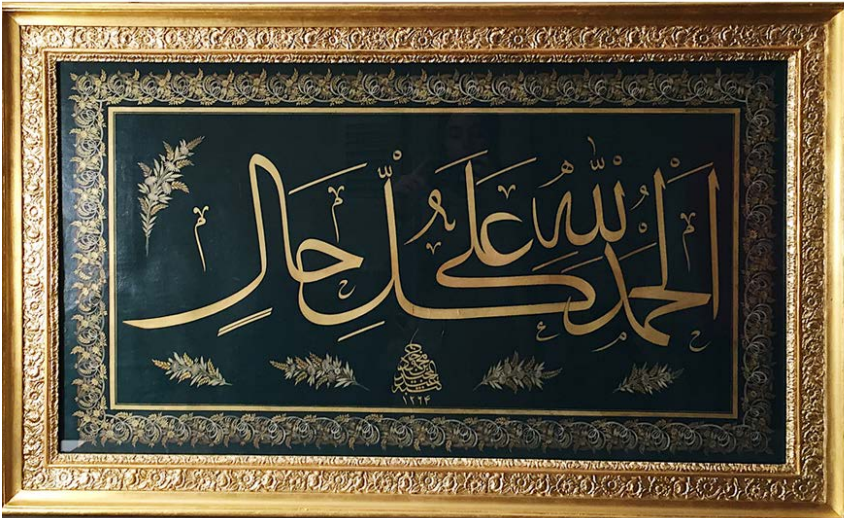 اَلْحَمْدُ لِلّٰهِ عَلَى كُلِّ حَالٍ
١٢٢٤